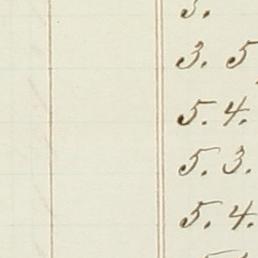 3.
3. 5
5. 4.
5. 3.
5. 4.